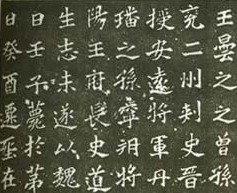 王曇之之曾孫
兗二州刾史晉
授安遠將軍丹
璠之孫寧朔將
陽王府長史道
生志未遂以魏
日壬子薨於苐
日癸酉遷在